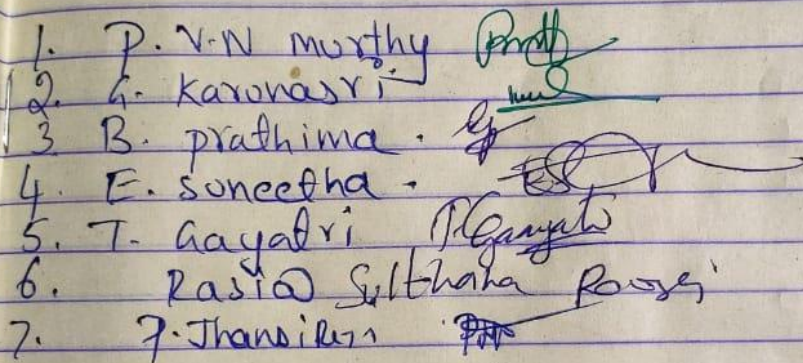 1. P. V.N Murthy
2. G. Karunasri
3 B. prathima.
4. E. suneetha.
5. T. Gayatri T. Gayatri
6. Rasia Sulthana
7. P. Jhansi Rani